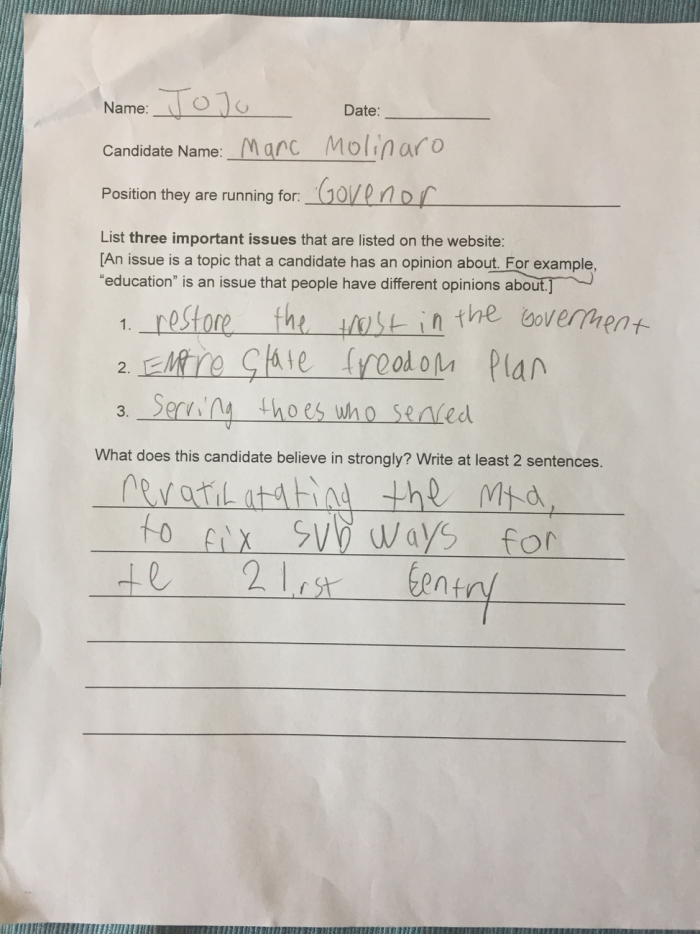 Name: JOJO Date:
Candidate Name: Marc Molinaro
Position they are running for: Govenor
List three important issues that are listed on the website:
[An issue is a topic that a candidate has an opinion about. For example,
"education" is an issue that people have different opinions about.]
1. restore the trust in the Goverment
2. Empire State freedom Plan
3. Serving thoes who served
What does this candidate believe in strongly? Write at least 2 sentences.
the Mta,
to fix subways for
te 21.rst Centry